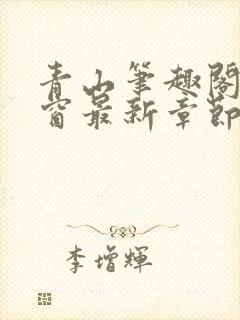 青山筆趣閣
窗最新章節
李增輝